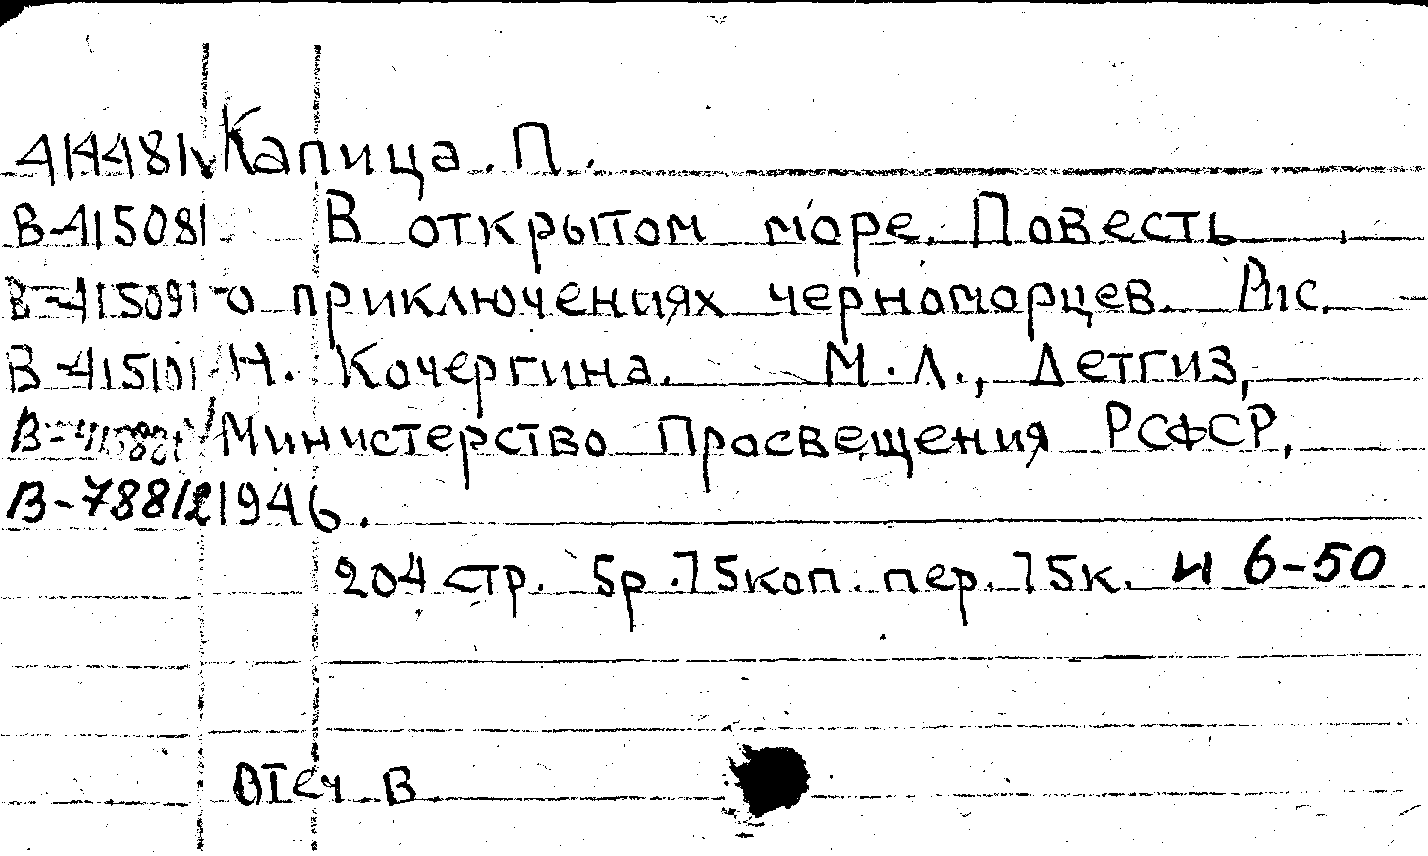 414481 Капица. П.
В-415081 В открытом море. Повесть
В-415091 о приключениях черноморцев. Рис.
В-415101 Н. Кочергина. М. Л., Детгиз,
Министерство Просвещения РСФСР,
В-78812 1946.
204 стр. 5р. 75коп. пер. 75к. и 6-50
Отеч В